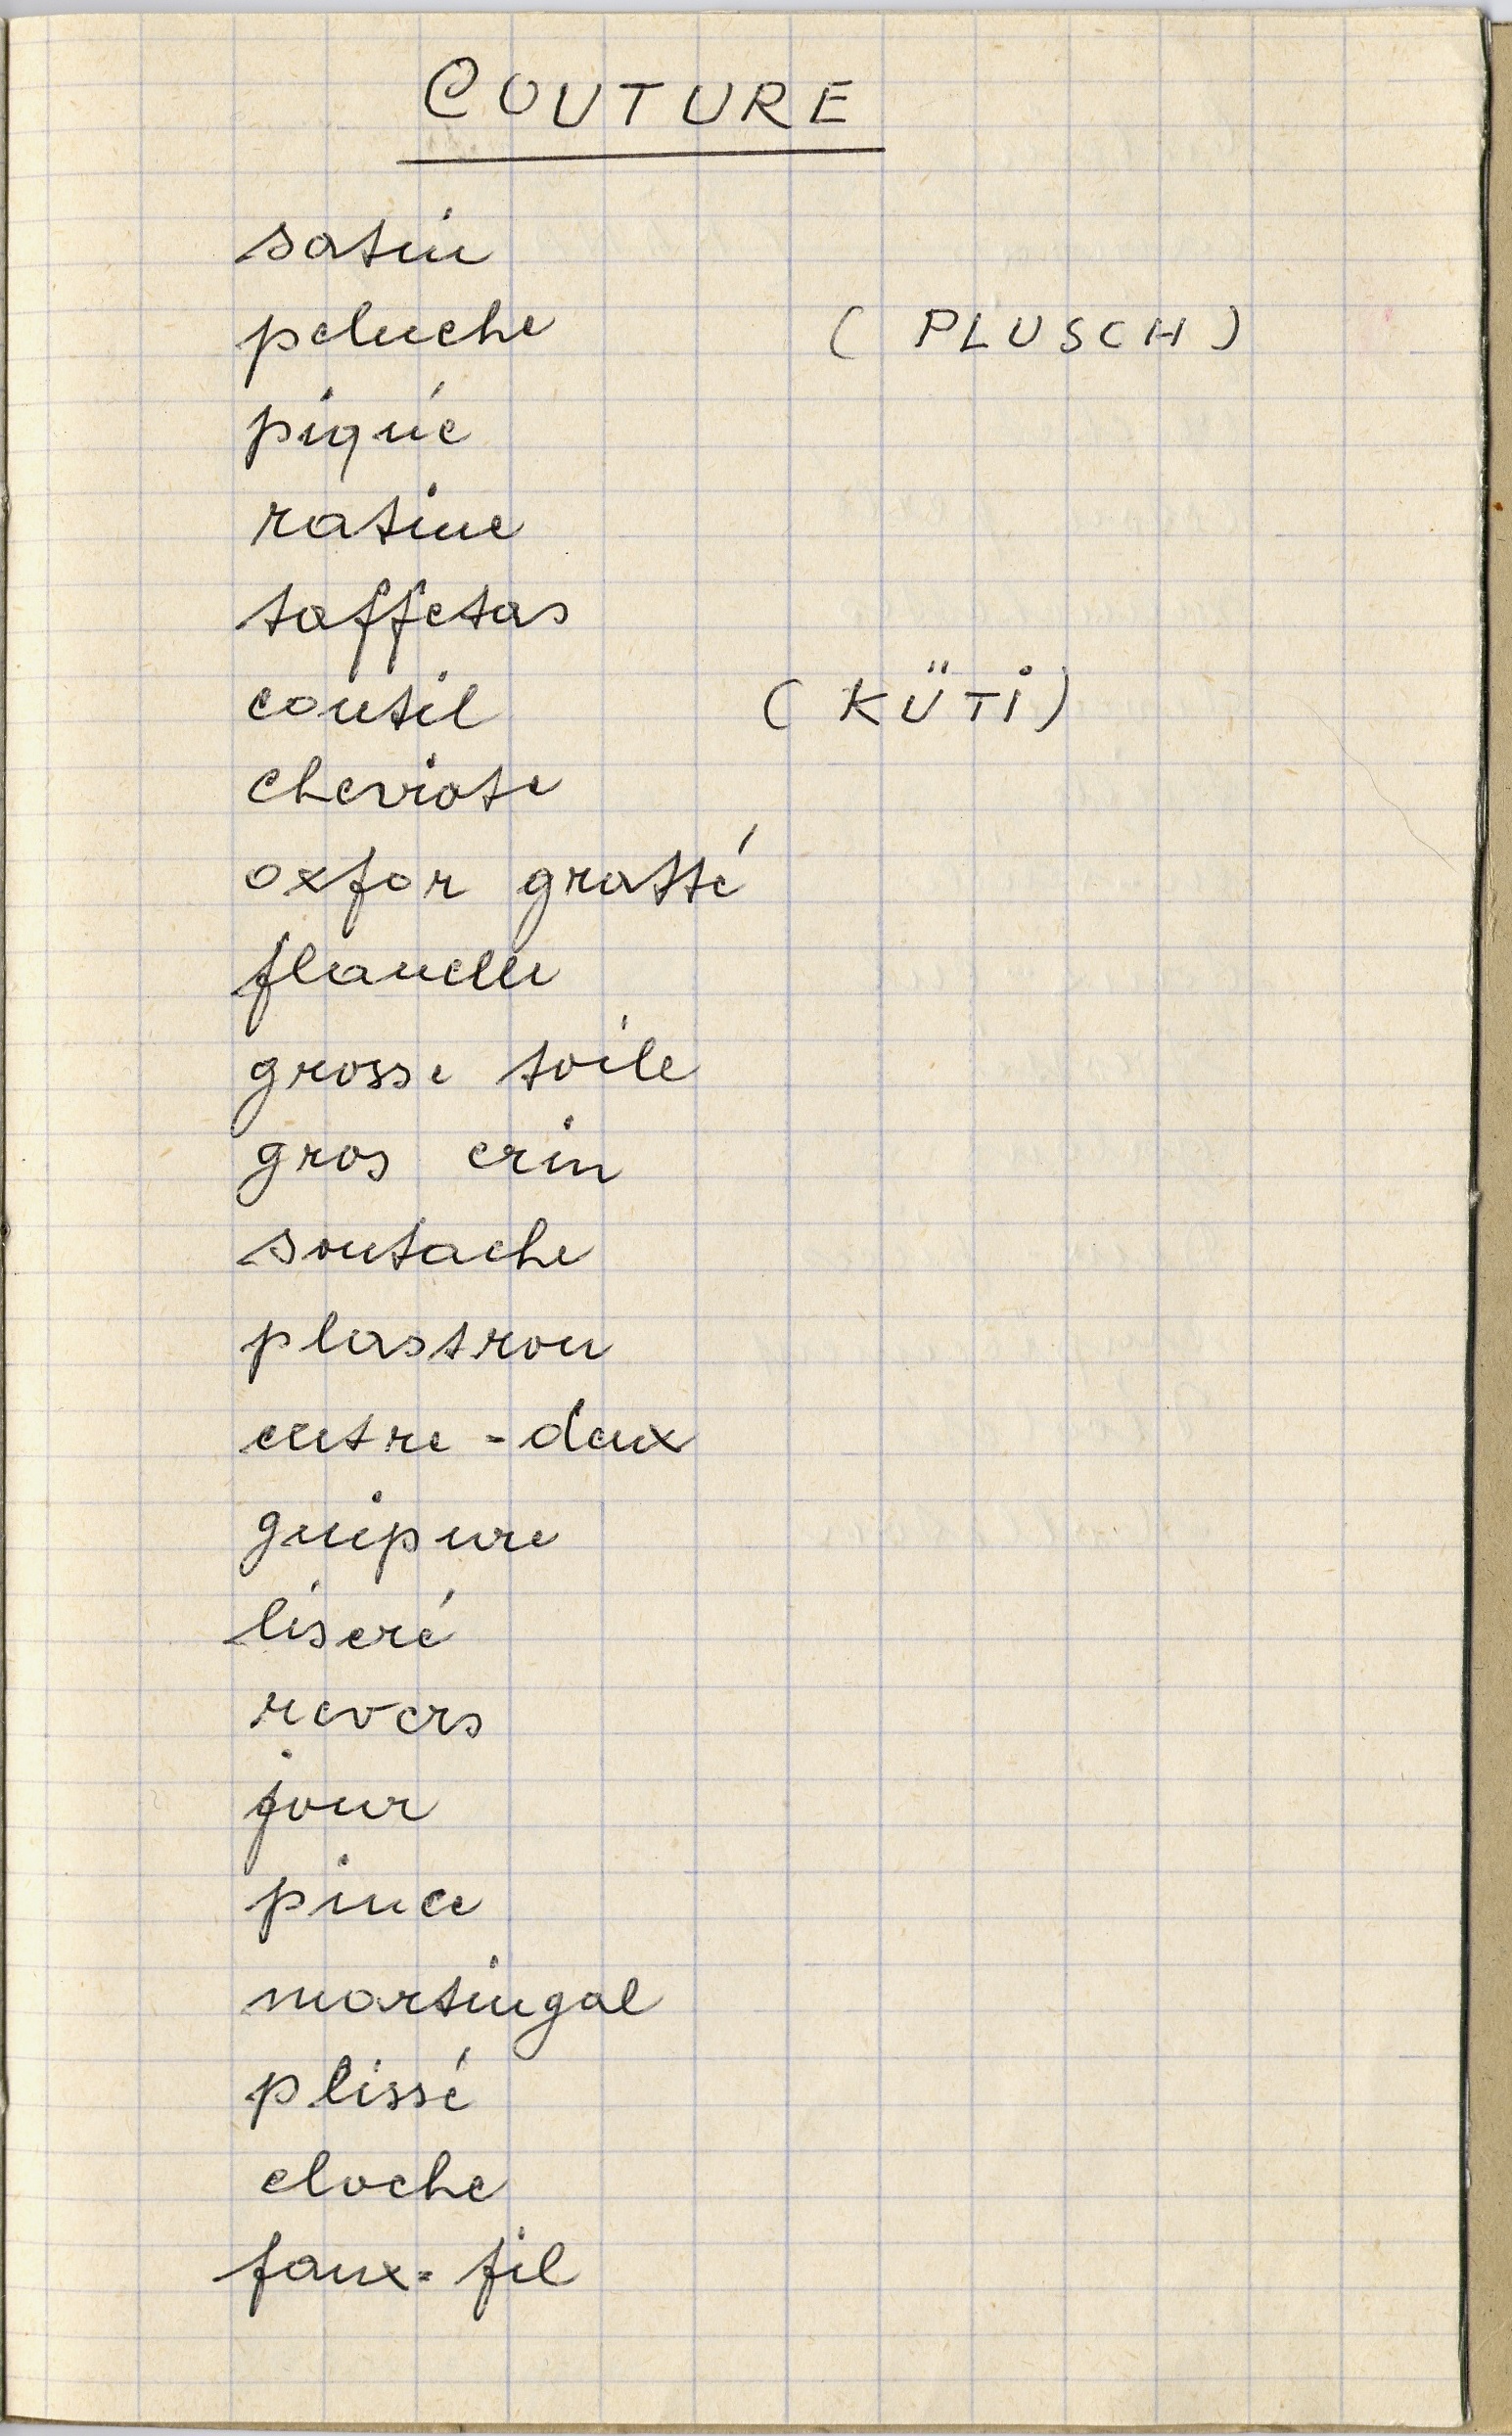 COUTURE
satin
peluche ( PLUSCH )
piqué
ratine
taffetas
coutil ( KÜTi )
cheviote
oxfor gratté
flanelle
grosse toile
gros crin
soutache
plastron
entre-deux
guipure
liseré
revers
jour
pince
martingal
plissé
cloche
faux-fil